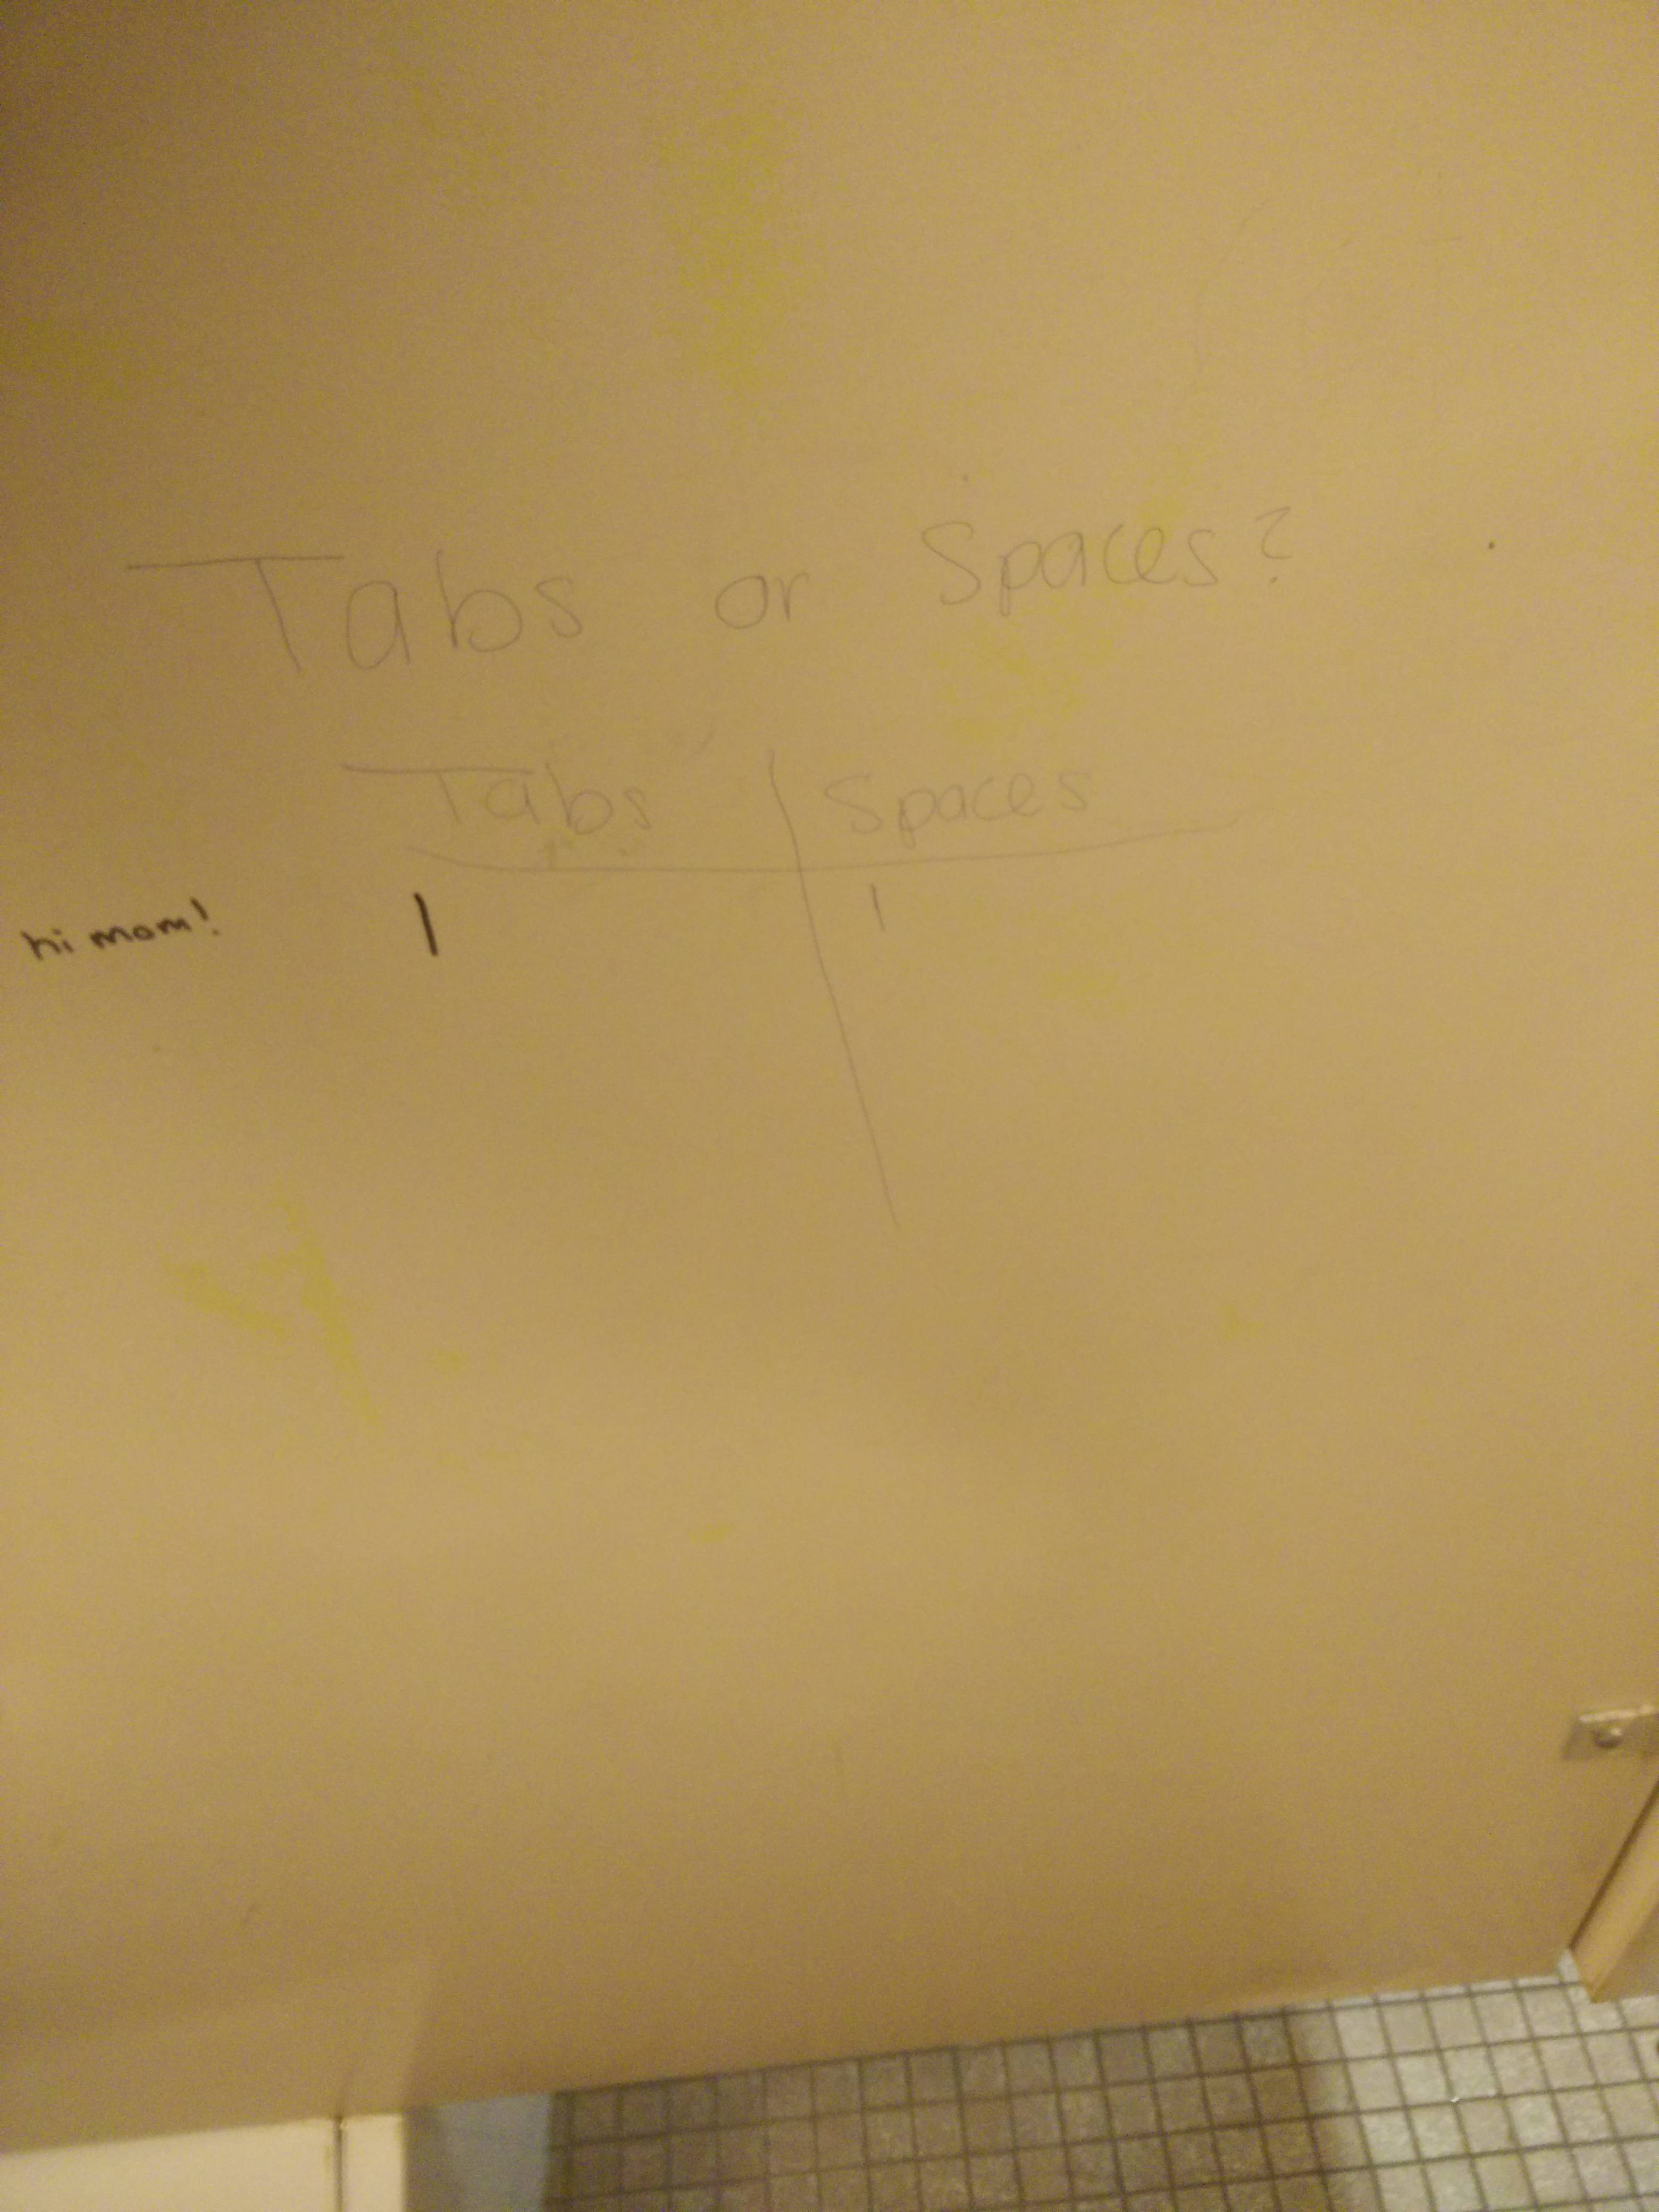 Tabs or Spaces?
Tabs | Spaces
hi mom! | |